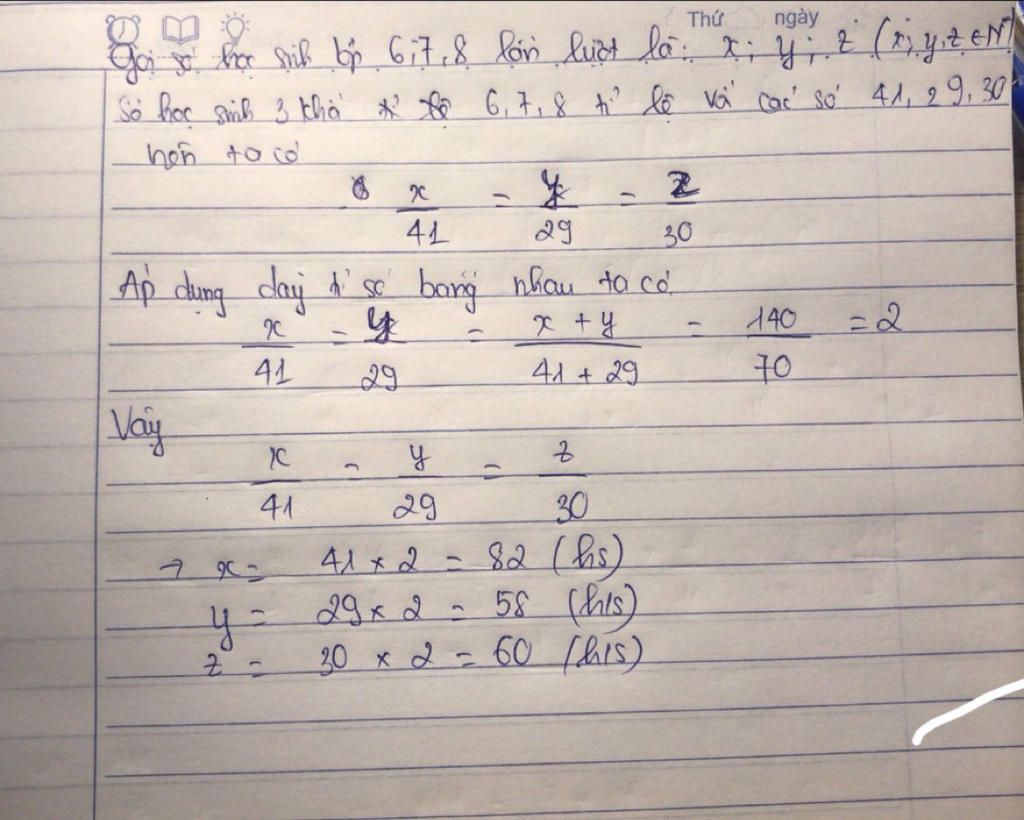 Thứ ngày
Gọi số học sinh lớp 6,7,8 lần lượt là: x; y; z (x; y; z ∈ N*
Số học sinh 3 khối tỉ lệ 6, 7, 8 tỉ lệ với các số 41, 29, 30
nên ta có
x/41 = y/29 = z/30
Áp dụng dãy tỉ số bằng nhau ta có
x/41 = y/29 = x + y/41 + 29 = 140/70 = 2
Vậy
x/41 = y/29 = z/30
→ x = 41 × 2 = 82 (hs)
y = 29 × 2 = 58 (h/s)
z = 30 × 2 = 60 (h/s)